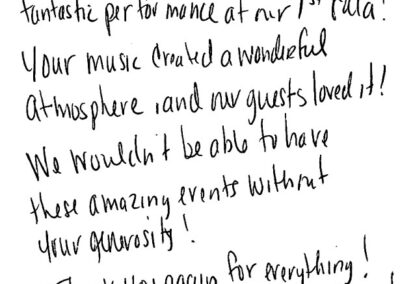 fantastic performance at our 1st Gala!
Your music created a wonderful
atmosphere, and our guests loved it!
We wouldn't be able to have
these amazing events without
your generosity!
Thank you again for everything!